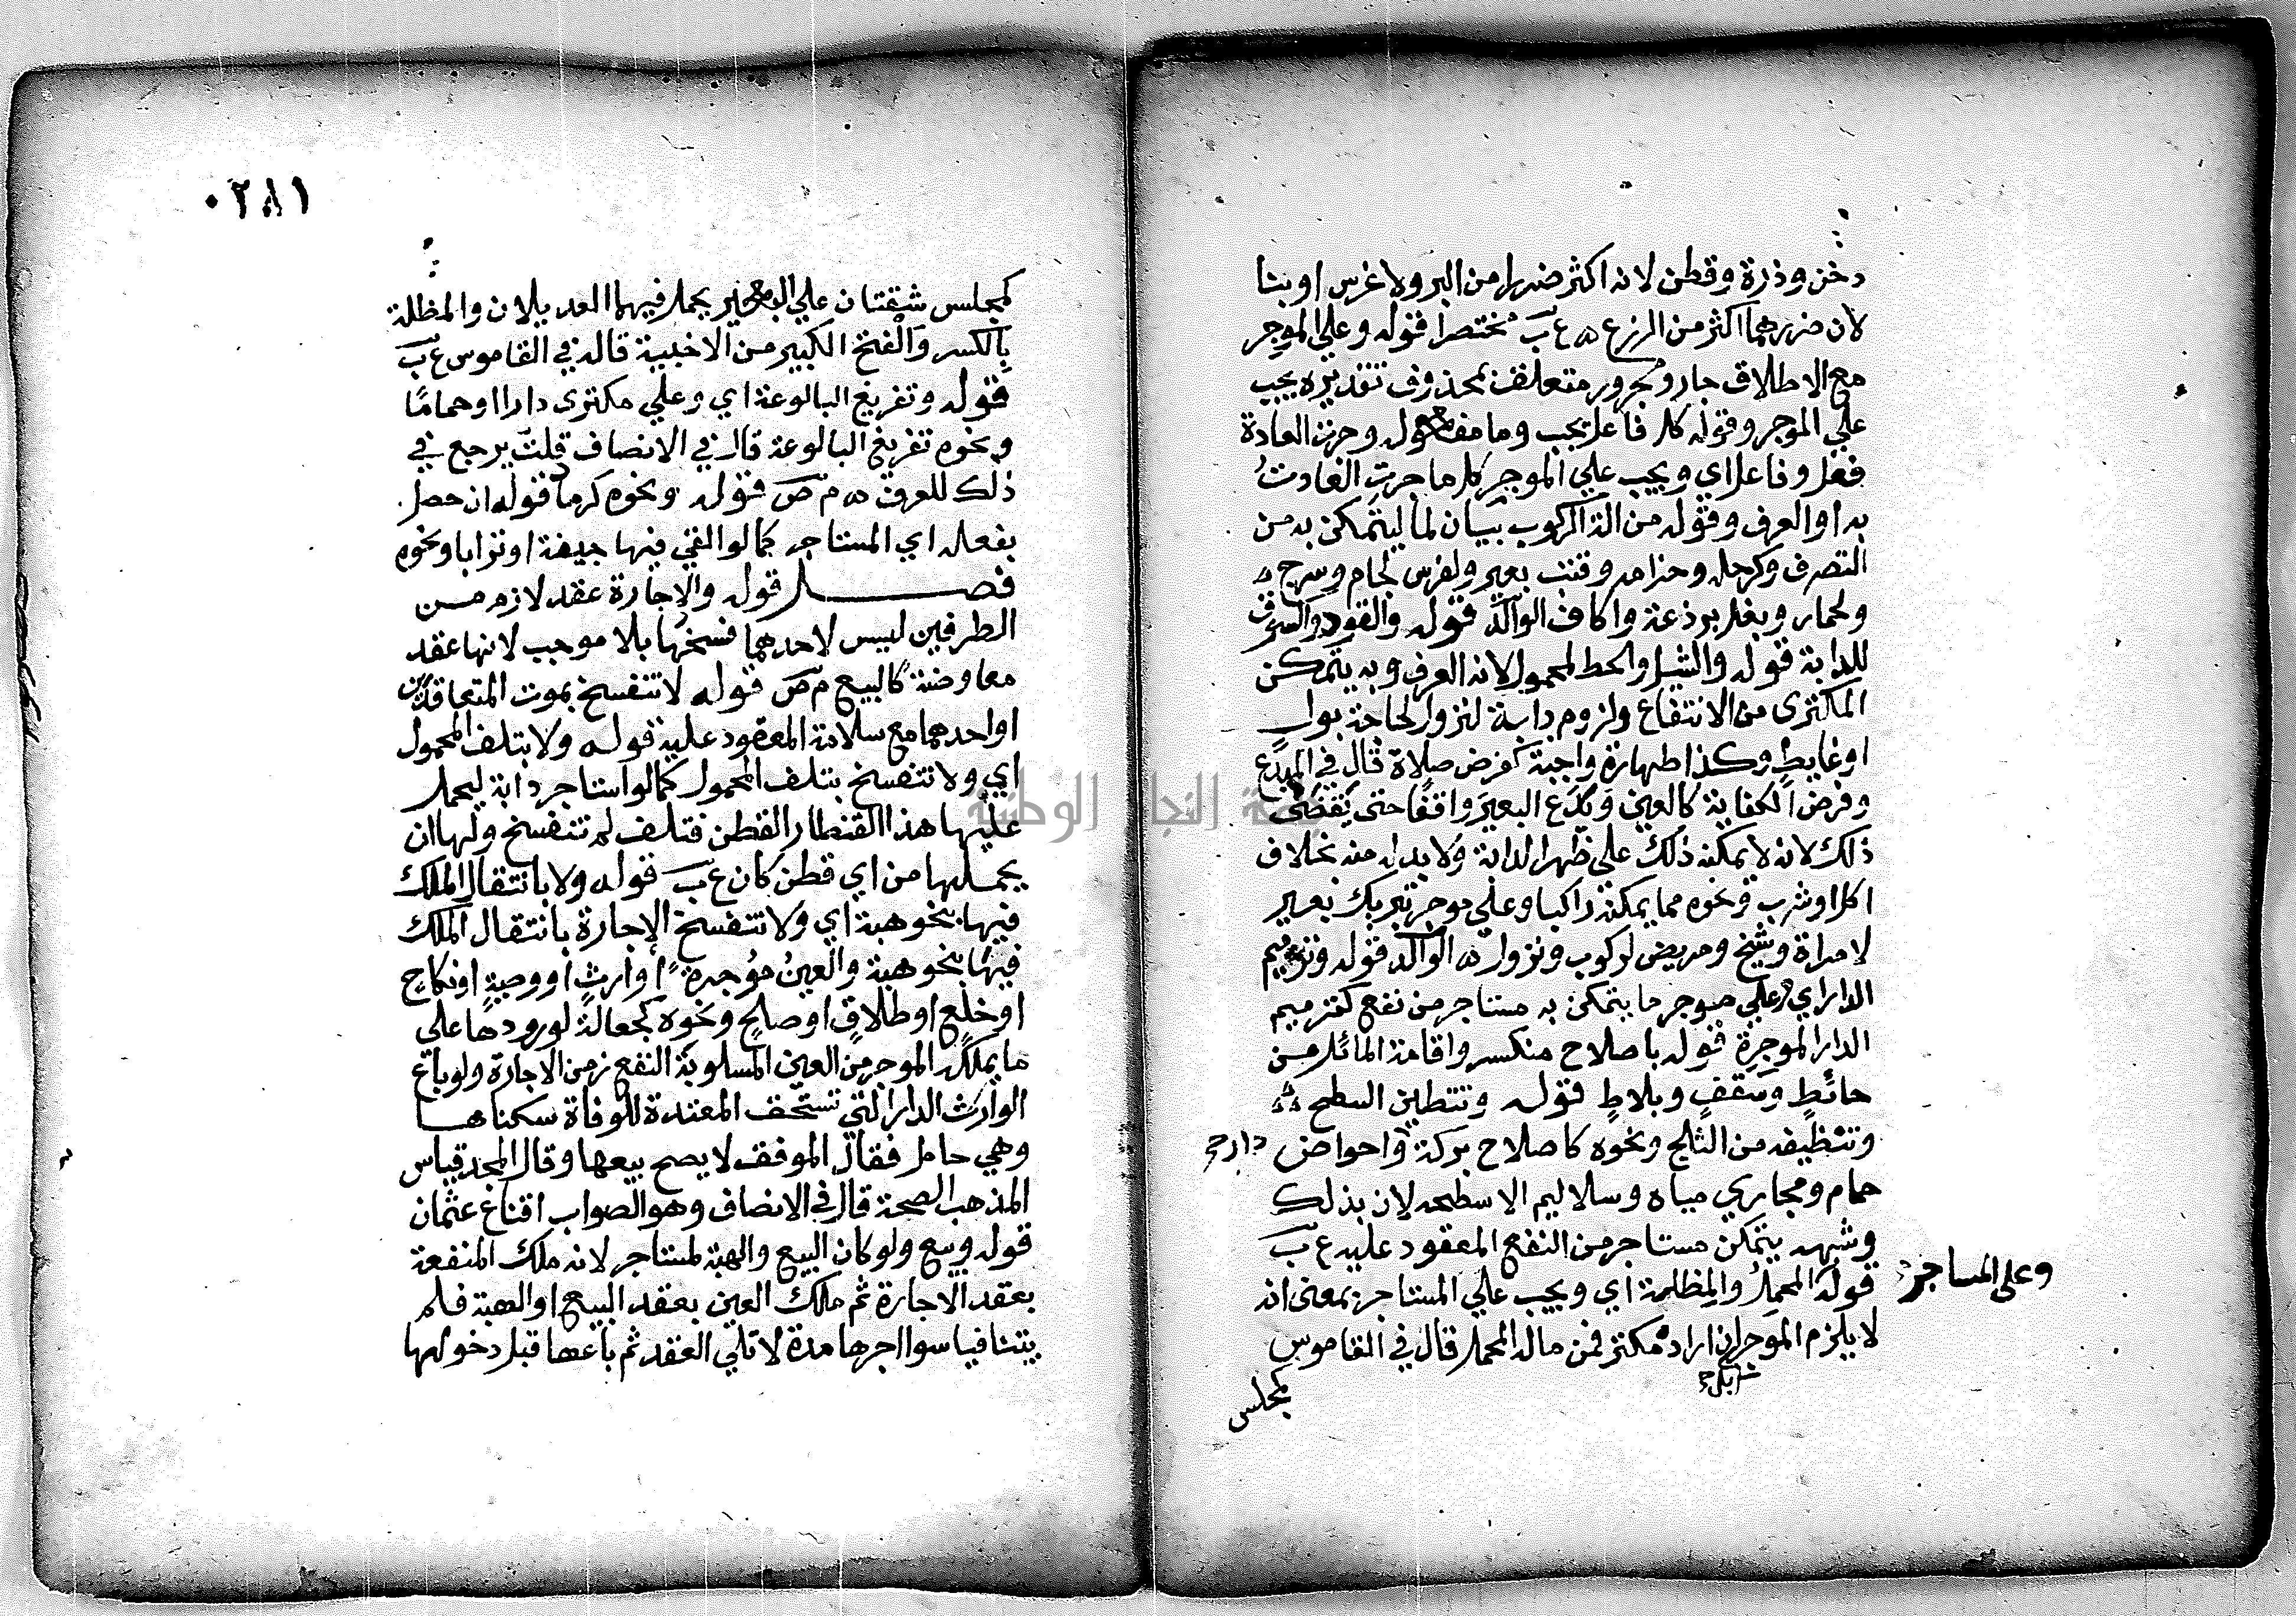 دخن وذرة وقطن لانه اكثر ضررا من البر ولا غرس او بنا
لان ضررهما اكثر من الزرع ه ع ب مختصرا قوله وعلي الموجر
مع الاطلاق جار ومجرور متعلق بمحذوف تقديره يجب
علي الموجر وقوله كل فاعل يجب وما مفعول وجرت العادة
فعل وفاعل اي ويجب علي الموجر كل ما جرت العادت
به او العرف وقوله من الة الركوب بيان لما ليتمكن به من
التصرف وكرحله وحزامه وقتب بعير ولفرس لجام وسرج ه
ولحمار وبغل برذعة واكاف الوالد قوله والقود والسوق
للدابة قوله والشيل والحط لمحمول لانه العرف وبه يتمكن
المكترى من الانتفاع ولزوم دابة لنزول لحاجة بول
او غايط وكذا طهارة واجبة كفرض صلاة قال في المبدع
وفرض الكفاية كالعين ويدع البعير واقفا حتى يقضي
ذلك لانه لا يمكنه ذلك على ظهر الدابة ولا بد له منه بخلاف
اكل او شرب ونحوه مما يمكنه راكبا وعلي موجر تبريك بعير
لامراة وشيخ ومريض لركوب ونزول ه الوالد قوله وترميم
الدار اي وعلي موجر ما يتمكن به مستاجر من نفع كترميم
الدار الموجرة قوله باصلاح منكسر واقامة المائل من
حائط وسقف وبلاط قوله وتطيين السطح
وتنظيفه من الثلج ونحوه كاصلاح بركة واحواض دار
حمام ومجاري مياه وسلاليم الاسطحه لان بذلك
وشبهه يتمكن مستاجر من النفع المعقود عليه ع ب
وعلى المساجر
قوله المحمل والمظلمة اي ويجب علي المستاجر بمعنى انه
لا يلزم الموجر ان اراده مكتر فمن ماله المحمل قال في القاموس
بل
كمجلس
٠٢٨١
كمجلس شقتان علي البعير يحمل فيهما العديلان والمظلة
بالكسر والفتح الكبير من الاخبية قاله في القاموس ع ب
قوله وتفريغ البالوعة اي وعلي مكترى دارا او حماما
ونحوه تفريغ البالوعة قال في الانصاف قلت يرجع في
ذلك للعرف ه م ص قوله ونحوه كرماد قوله ان حصل
بفعله اي المستاجر كما لو القي فيها جيفة او ترابا ونحوه
فصل قوله والاجارة عقد لازم من
الطرفين ليس لاحدهما فسخها بلا موجب لانها عقد
معاوضة كالبيع م ص قوله لا تنفسخ بموت المتعاقدين
او احدهما مع سلامة المعقود عليه قوله ولا بتلف المحمول
اي ولا تنفسخ بتلف المحمول كما لو استاجر دابة ليحمل
عليها هذا القنطار القطن فتلف لم تنفسخ ولها ان
يحملها من اي قطن كان ع ب قوله ولا بانتقال الملك
فيها بنحو هبة اي ولا تنفسخ الاجارة بانتقال الملك
فيها بنحو هبة والعين مؤجرة او ارث او وصية او نكاح
او خلع او طلاق او صلح ونحوه كجعالة لورودها على
ما يملكه الموجر من العين المسلوبة النفع زمن الاجارة ولو باع
الوارث الدار التي تستحق المعتدة للوفاة سكناها
وهي حامل فقال الموفق لا يصح بيعها وقال المجد قياس
المذهب الصحة قال في الانصاف وهو الصواب اقناع عثمان
قوله وبيع ولو كان البيع والهبة لمستاجر لانه ملك المنفعة
بعقد الاجارة ثم ملك العين بعقد البيع او الهبة فلم
يتنافيا سوا اجرها مدة لا تلي العقد ثم باعها قبل دخولها